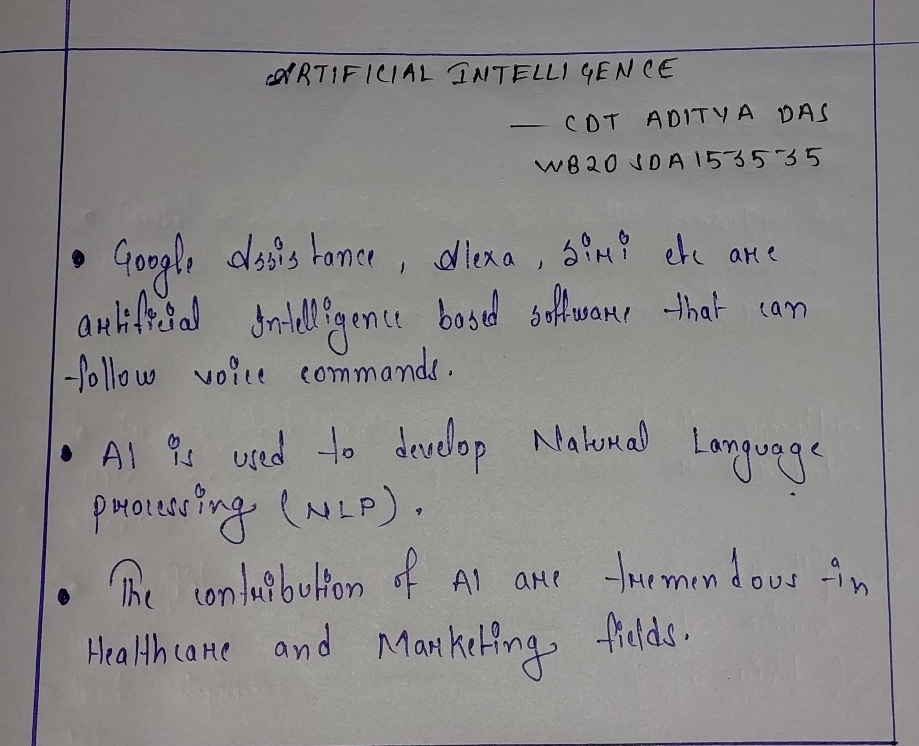 ARTIFICIAL INTELLIGENCE
— CDT ADITYA DAS
WB20SDA153535
• Google Assistance, Alexa, Siri etc are
artificial Intelligence based software that can
follow voice commands.
• AI is used to develop Natural Language
processing (NLP).
• The contribution of AI are tremendous in
Healthcare and Marketing fields.